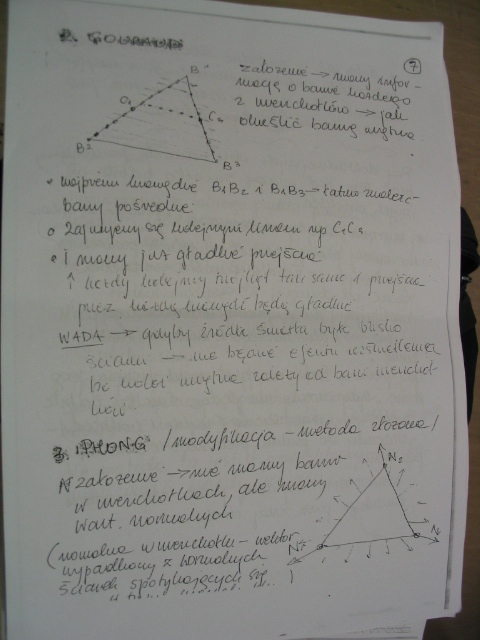 2. GOURAUD
7
założenie → mamy infor-
mację o barwie każdego
z wierzchołków → jak
określić barwę wnętrza
B1
C1
C2
B2
B3
• najpierw krawędzie B1B2 i B1B3 → łatwo znaleźć
barwy pośrednie
• zajmujemy się kolejnymi liniami np C1C2
• i mamy już gładkie przejścia
↑ każdy kolejny trójkąt tak samo i przejścia
przez każdą krawędź będą gładkie
WADA → gdyby źródło światła było blisko
ściany → nie będzie efektu rozświetlenia
bo kolor wnętrza zależy od barw wierzchoł-
ków
3. PHONG /modyfikacja - metoda złożona/
założenie → nie mamy barw
w wierzchołkach, ale mamy
wart. normalnych
(normalna w wierzchołku - wektor
wypadkowy z normalnych
ścianek spotykających się
N2
N1
N3